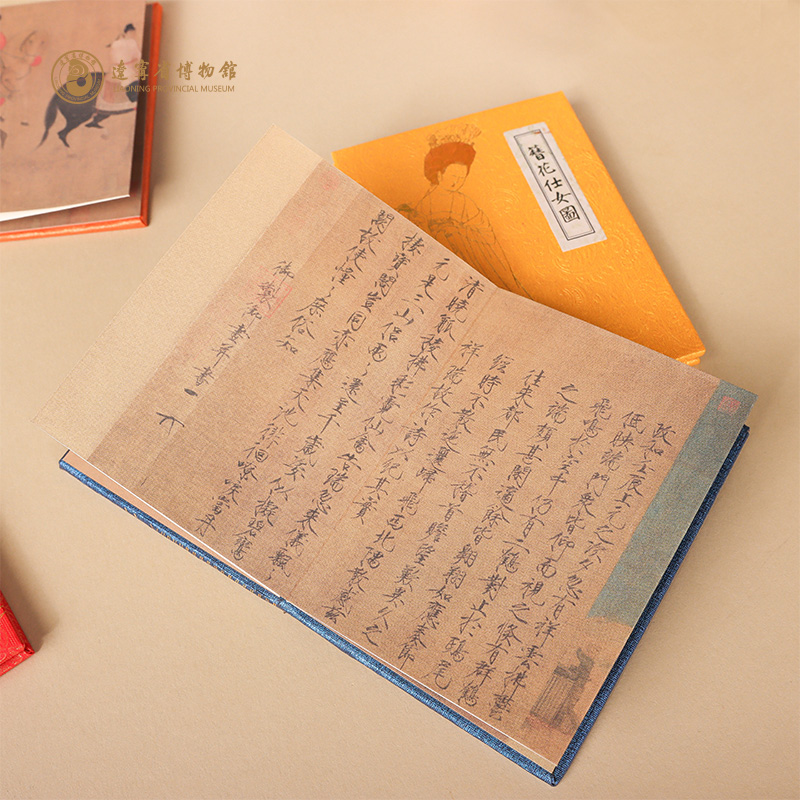 遼寧省博物館
LIAONING PROVINCIAL MUSEUM
簪花仕女圖
政和壬辰上元之次夕忽有祥雲拂鬱
低映端門衆皆仰而視之倐有群鶴
飛鳴於空中仍有二鶴對止於鴟尾
之端頗甚閒適餘皆翱翔如應奏節
往來都民無不稽首瞻望歎異久之
經時不散迤邐歸飛西北隅散感茲
祥瑞故作詩以紀其實
清曉觚稜拂彩霓仙禽告瑞忽來儀飄〻
元是三山侶兩〻還呈千歲姿似擬碧鸞
棲寶閣豈同赤鴈集天池徘徊嘹唳當丹
闕故使憧〻庶俗知
御製御畫并書